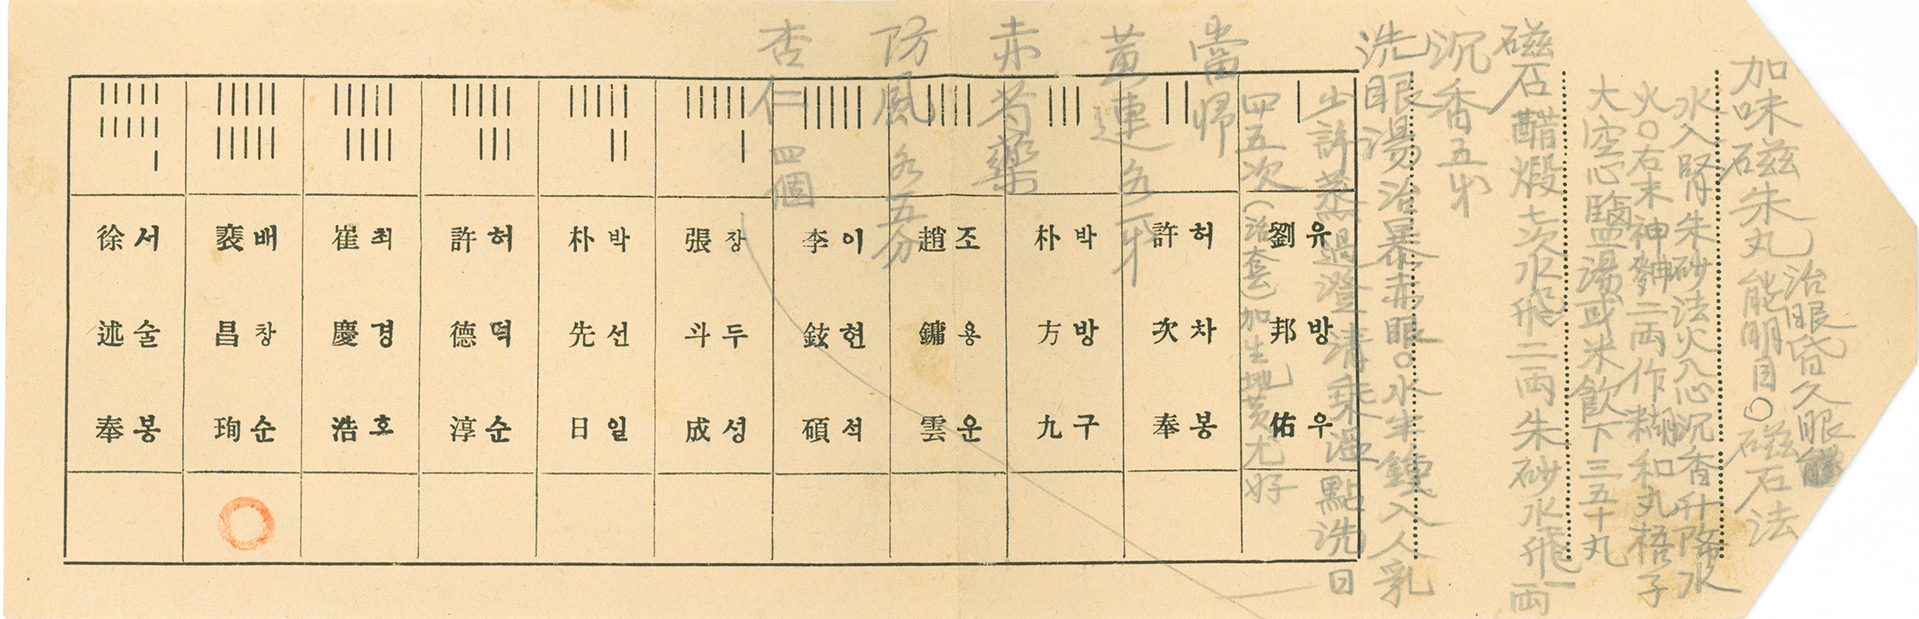 加味磁朱丸能明目○磁石法
治眼昏久眼
水入腎朱砂法火入心沉香升降水
火○右末神麯二兩作糊和丸梧子
大空心鹽湯或米飮下三五十丸
磁石醋煅七次水飛二兩朱砂水飛一兩
沉香五牙
洗眼湯治暴赤眼○水半鍾入人乳
少許蒸過澄淸乘溫點洗日
四五次(治套)加生地黃尤好
當歸
黃連各一牙
赤芍藥
防風各五分
杏仁四個
劉邦佑 유방우
許次奉 허차봉
朴方九 박방구
趙鏞雲 조용운
李鉉碩 이현석
張斗成 장두성
朴先日 박선일
許德淳 허덕순
崔慶浩 최경호
裵昌珣 배창순
徐述奉 서술봉